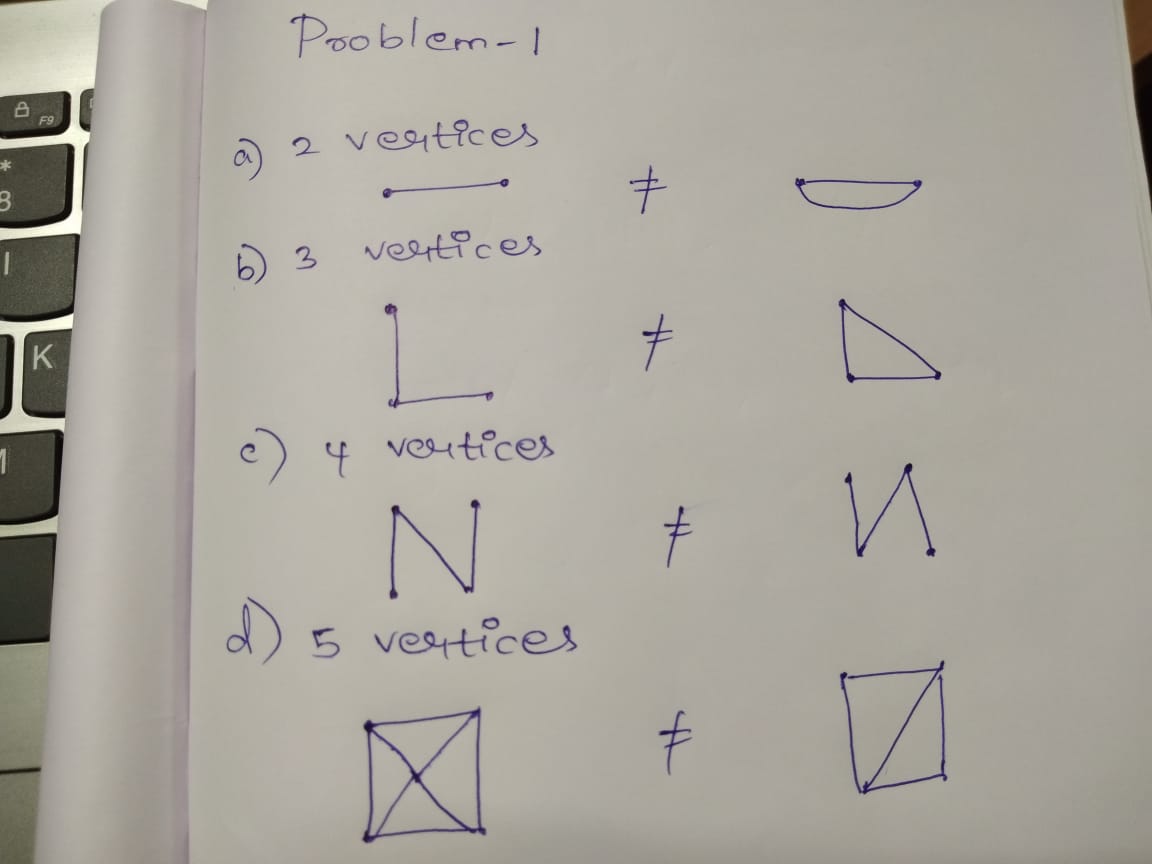 Problem-1
a) 2 vertices
≠
b) 3 vertices
≠
c) 4 vertices
≠
d) 5 vertices
≠
F9
*
8
I
K
M